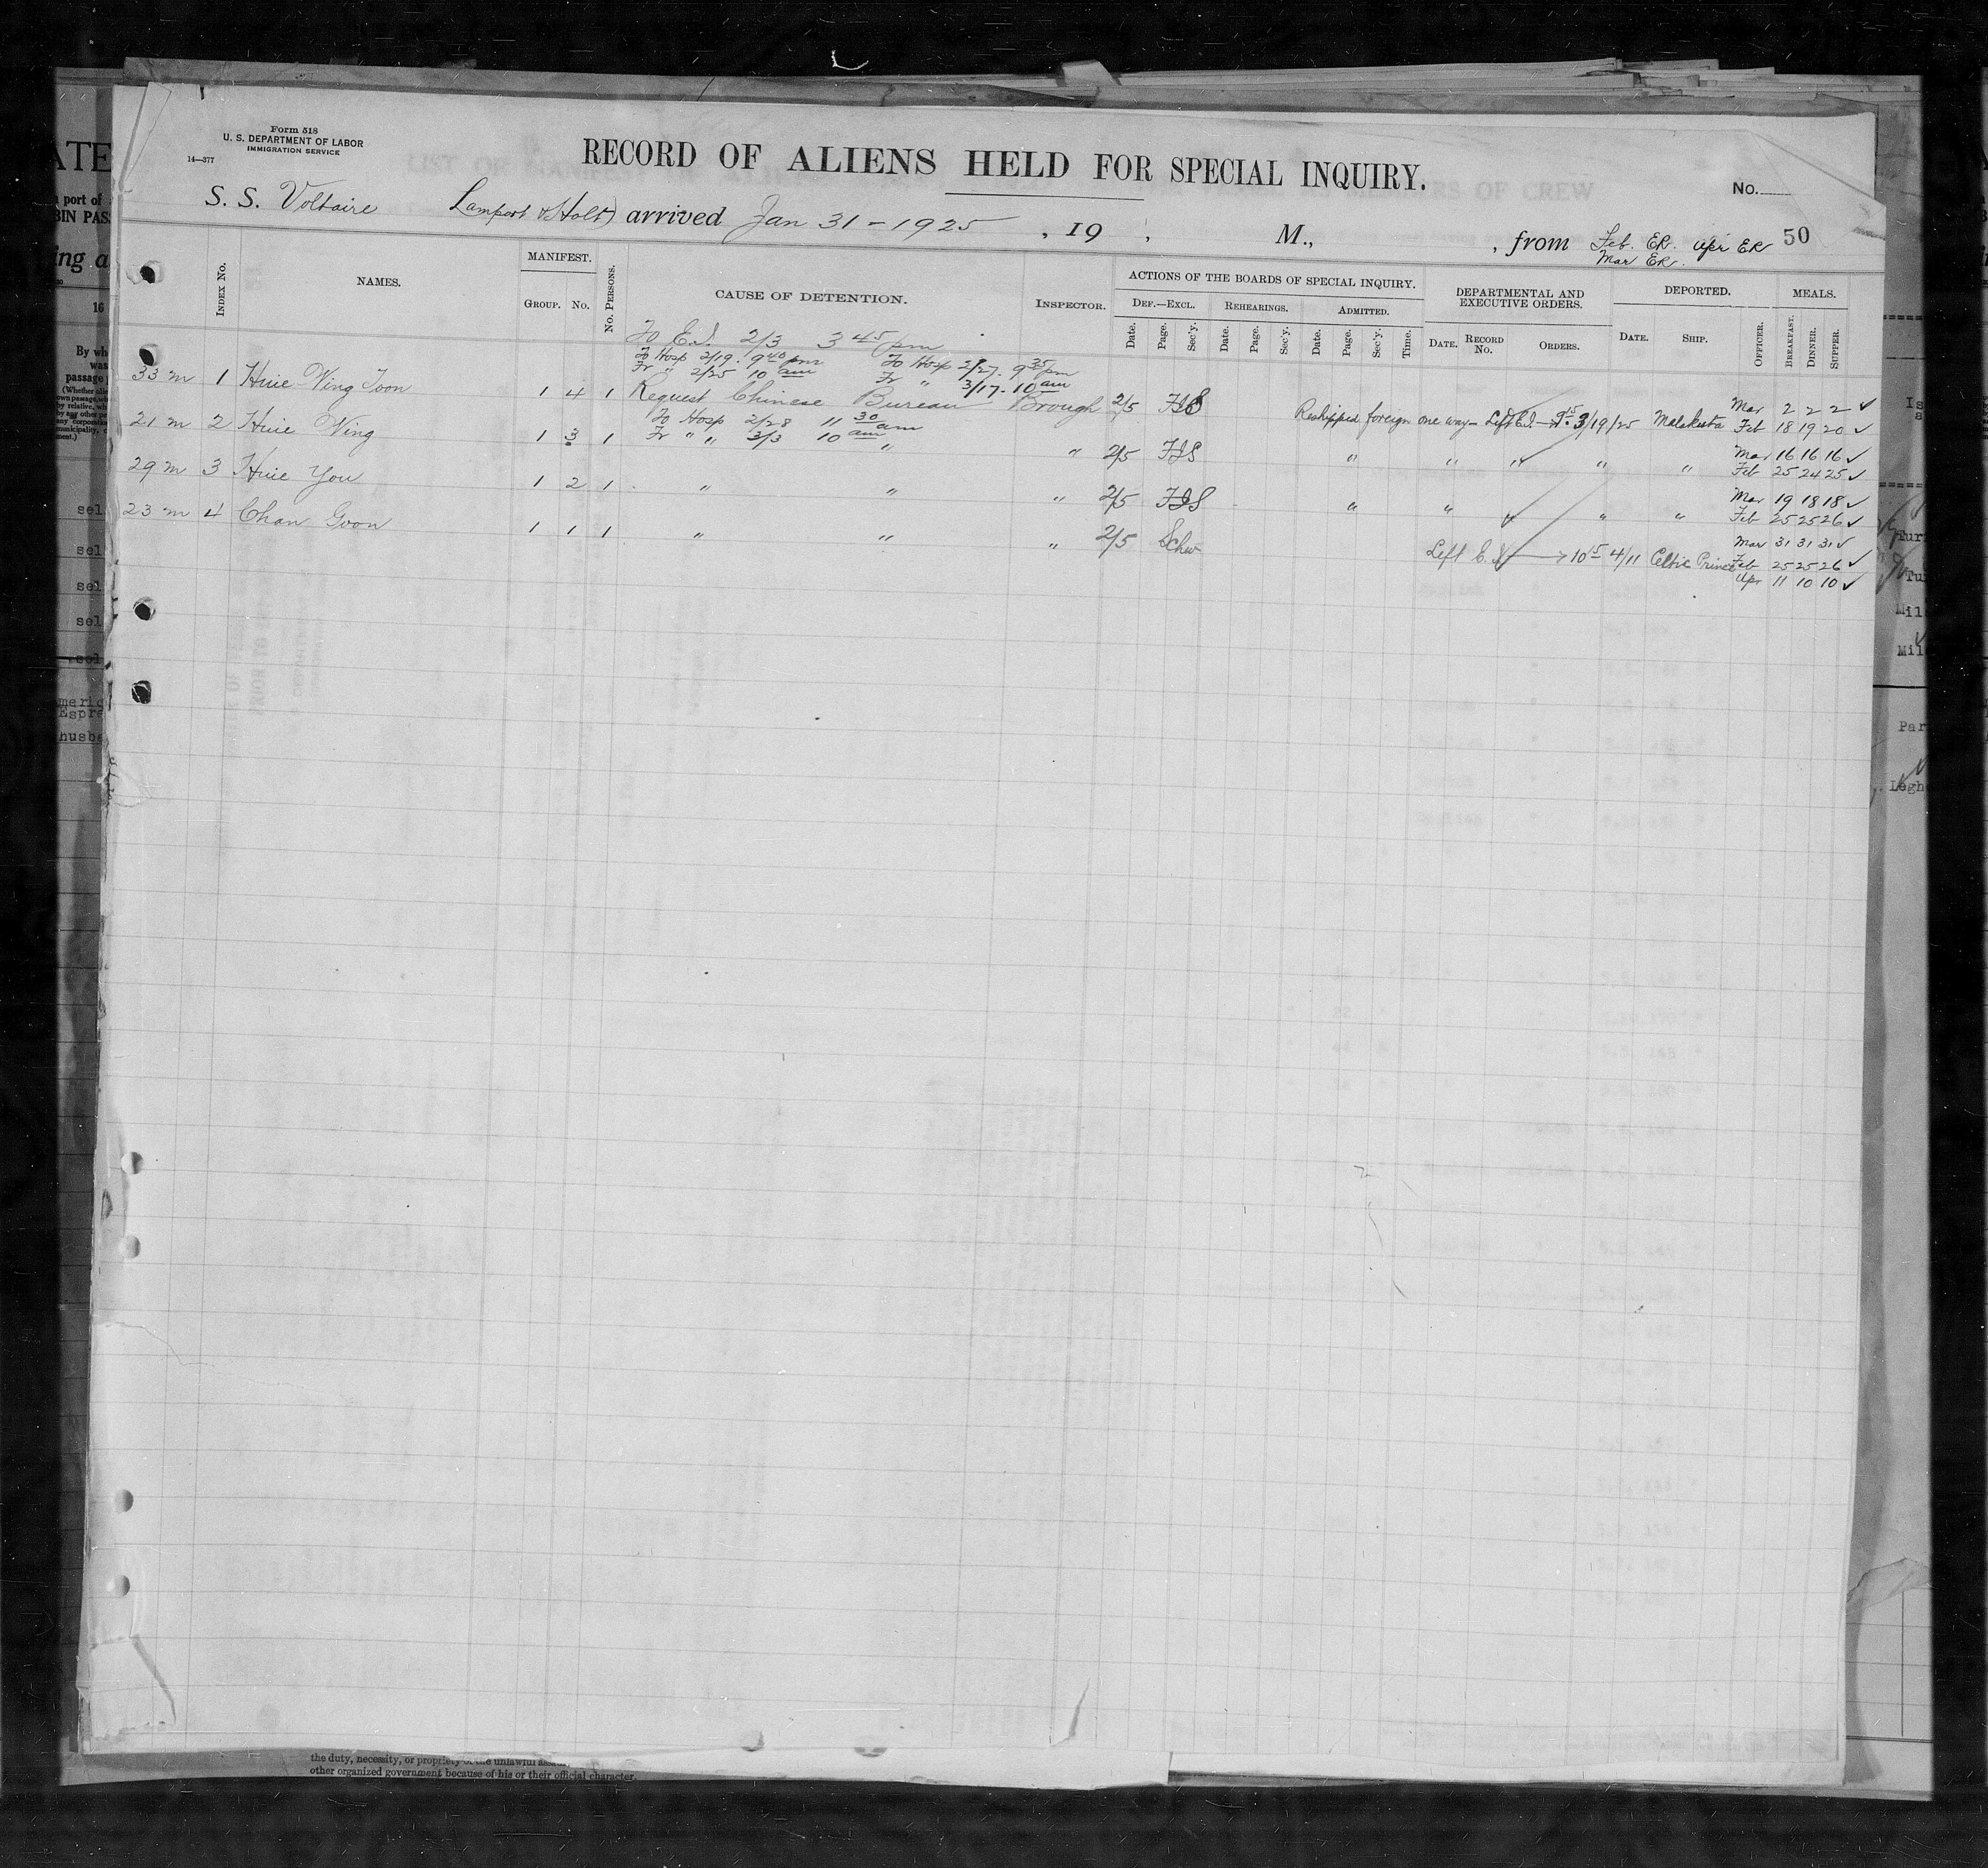 Form 518
U. S. DEPARTMENT OF LABOR
IMMIGRATION SERVICE
14—377
RECORD OF ALIENS HELD FOR SPECIAL INQUIRY.
No.
S. S. Voltaire Lamport & Holt) arrived Jan 31 - 1925 , 19 , M., , from Feb. ER. Apr ER 50
Mar ER.
INDEX NO. NAMES. MANIFEST. GROUP. NO. NO. PERSONS. CAUSE OF DETENTION. INSPECTOR. ACTIONS OF THE BOARDS OF SPECIAL INQUIRY. DEPARTMENTAL AND EXECUTIVE ORDERS. DEPORTED. MEALS.
DEF.—EXCL. REHEARINGS. ADMITTED.
Date. Page. Sec'y. Date. Page. Sec'y. Date. Page. Sec'y. Time. DATE. RECORD NO. ORDERS. DATE. SHIP. OFFICER. BREAKFAST. DINNER. SUPPER.
To E.I. 2/3 3 45 pm
To Hosp 2/19. 9 40 pm To Hosp 2/27. 9 35 pm
Fr " 2/25 10 am Fr " 3/17. 10 am
33 m 1 Huie Wing Toon 1 4 1 Request Chinese Bureau Brough 2/5 FJS Reshipped foreign one way - Left E.I. 9 15 3/19/25 Malakuta Mar 2 2 2 ✓
Feb 18 19 20 ✓
To Hosp 2/28 11 30 am
Fr " " 3/3 10 am
21 m 2 Huie Wing 1 3 1 " " 2/5 FJS " " " " " Mar 16 16 16 ✓
Feb 25 24 25 ✓
29 m 3 Huie You 1 2 1 " " " 2/5 FJS " " " " " Mar 19 18 18 ✓
Feb 25 25 26 ✓
23 m 4 Chan Goon 1 1 1 " " " 2/5 Schw Left E. I 10 15 4/11 Celtic Prince Mar 31 31 31 ✓
Feb 25 25 26 ✓
Apr 11 10 10 ✓
the duty, necessity, or propriety of the unlawful
other organized government because of his or their official character.